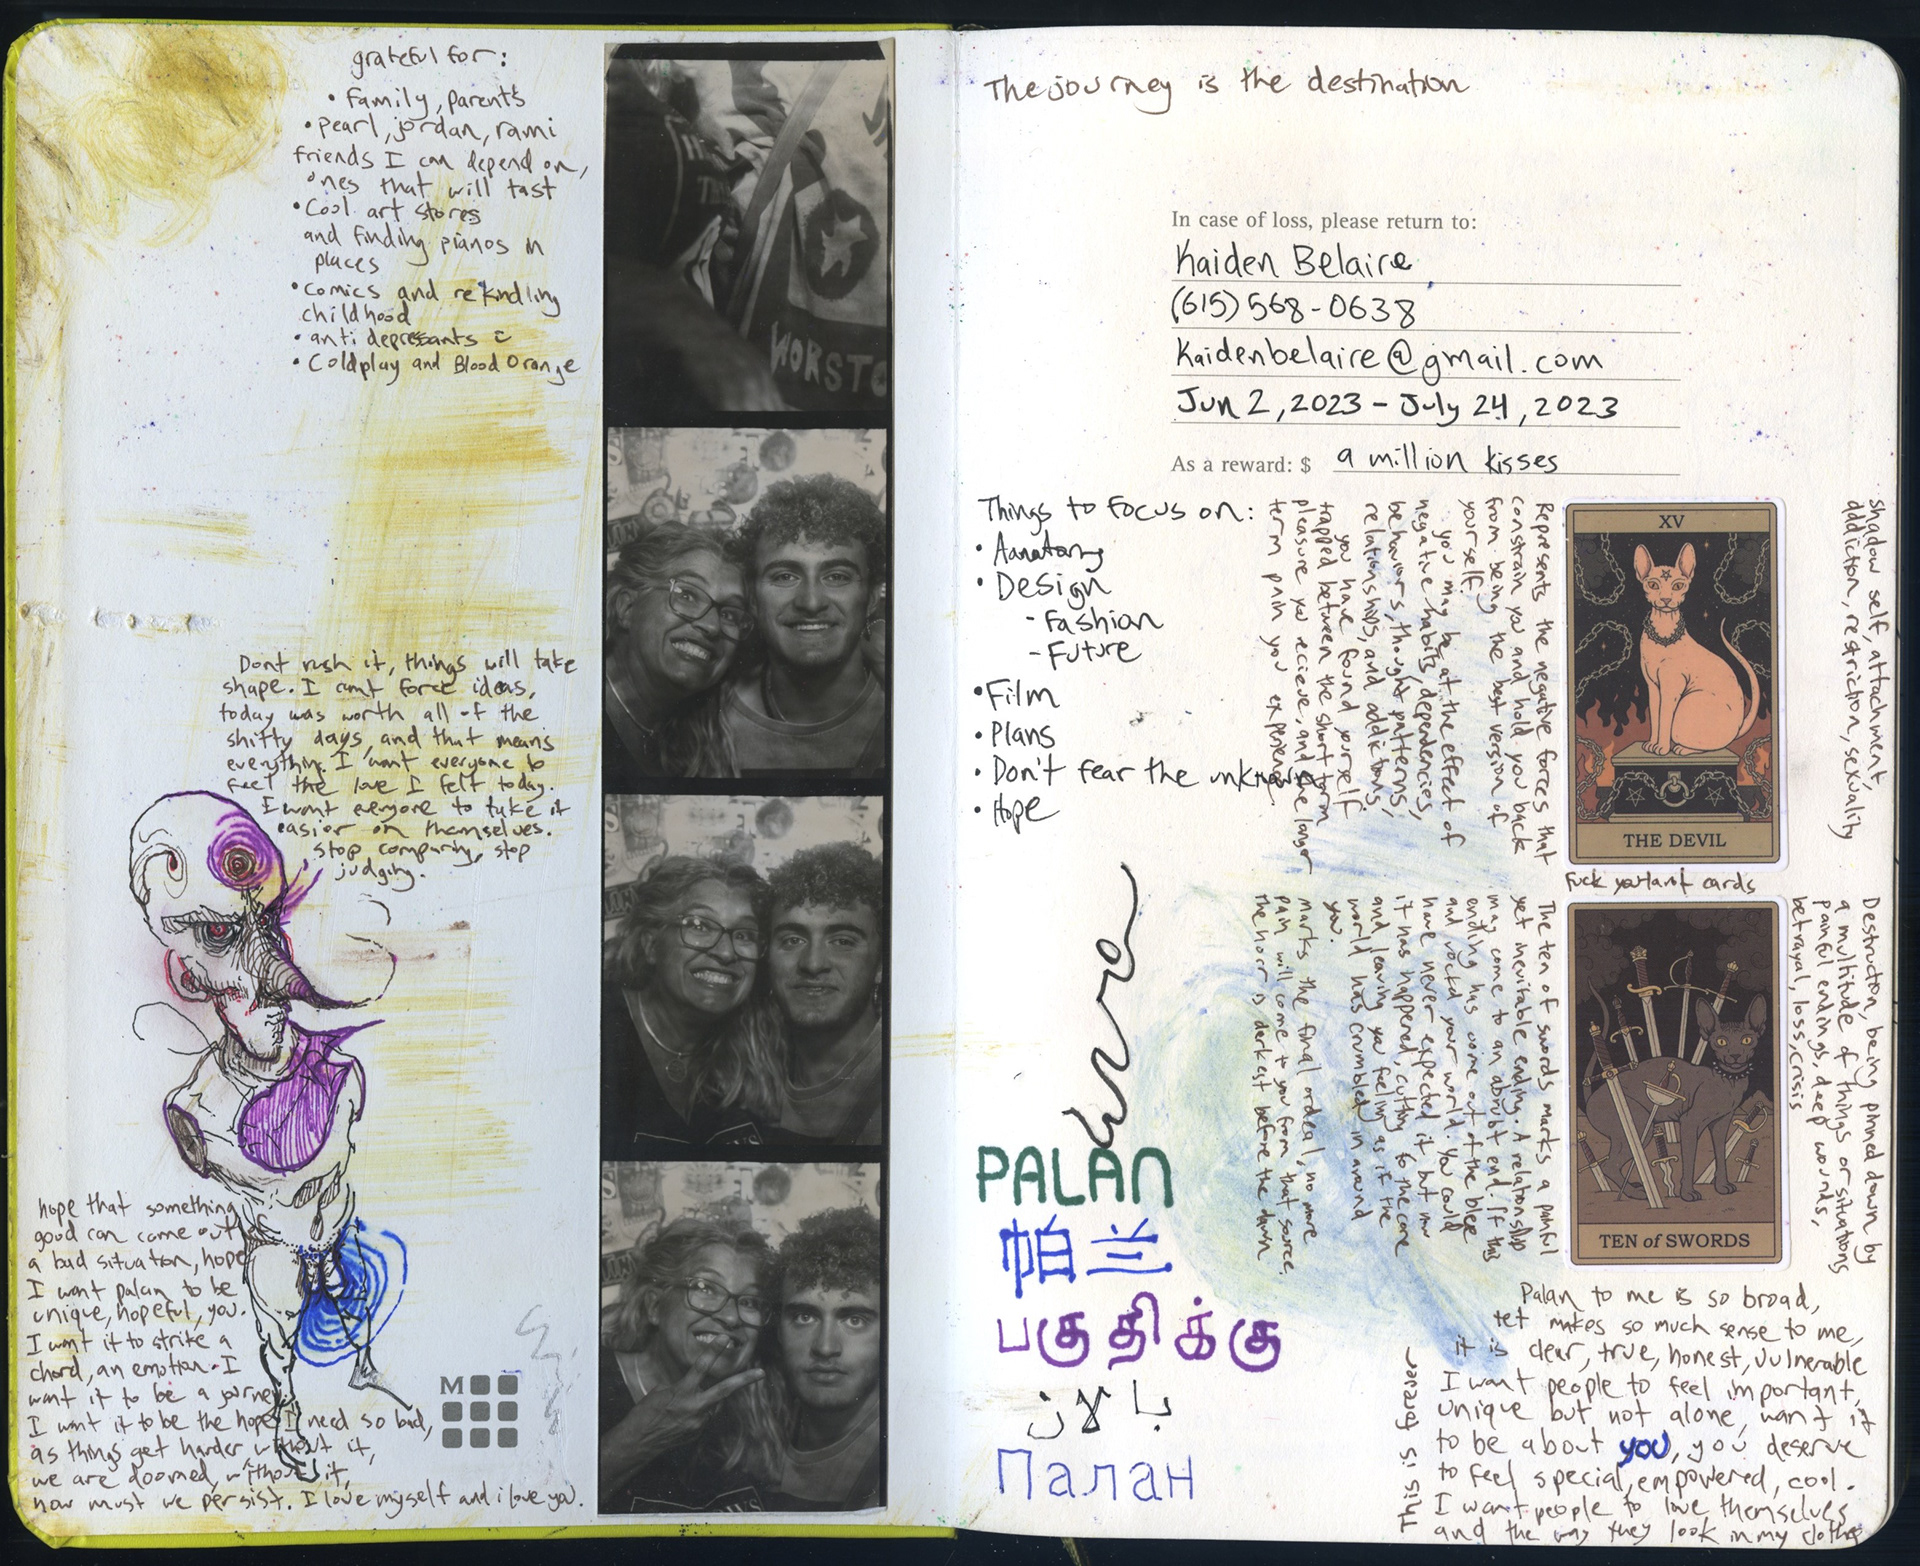 grateful for:
• family, parents
• pearl, jordan, rami
friends I can depend on,
ones that will last
• Cool art stores
and finding pianos in
places
• comics and rekindling
childhood
• anti depressants
• Coldplay and Blood Orange
WORSTO
Dont rush it, things will take
shape. I cant force ideas,
today was worth all of the
shitty days, and that means
everything. I want everyone to
feel the love I felt today.
I want everyone to take it
easier on themselves.
stop comparing, stop
judging.
hope that something
good can come out of
a bad situation, hope
I want palan to be
unique, hopeful, you.
I want it to strike a
chord, an emotion. I
want it to be a journey.
I want it to be the hope I need so bad,
as things get harder without it,
we are doomed, without it,
how must we persist. I love myself and i love you.
M
The journey is the destination
In case of loss, please return to:
Kaiden Belaire
(615) 568-0638
Kaidenbelaire@gmail.com
Jun 2, 2023 - July 24, 2023
As a reward: $ a million kisses
Things to focus on:
• Design
- Fashion
- Future
• Film
• Plans
• Don't fear the unknown
• Hope
Represents the negative forces that
constrain you and hold you back
from being the best version of
yourself.
you may be at the effect of
negative habits, dependencies,
behaviors, thought patterns,
relationships, and addictions,
you have found yourself
trapped between the short term
pleasure you recieve, and the longer
term pain you experience.
XV
THE DEVIL
shadow self, attachment,
addiction, restriction, sexuality
Fuck you tarot cards
The ten of swords marks a painful
yet inevitable ending. A relationship
may come to an abrubt end. If this
ending has come out of the blue
and rockd your world. You could
have never expected it but now
it has happened, cutting to the core
and leaving you feeling as if the
world has crumbled in around
you.
marks the final ordeal, no more
pain will come to you from that source.
the horr is darkest before the dawn
TEN of SWORDS
Destruction, being pinned down by
a multitude of things or situations
painful endings, deep wounds,
betrayal, loss, crisis
PALAN
帕兰
பகுதிக்கு
بالان
Палан
Palan to me is so broad,
yet makes so much sense to me,
it is clear, true, honest, vulnerable
I want people to feel important,
unique but not alone, want it
to be about you, you deserve
to feel special, empowered, cool.
I want people to love themselves
and the way they look in my clothes
This is forever